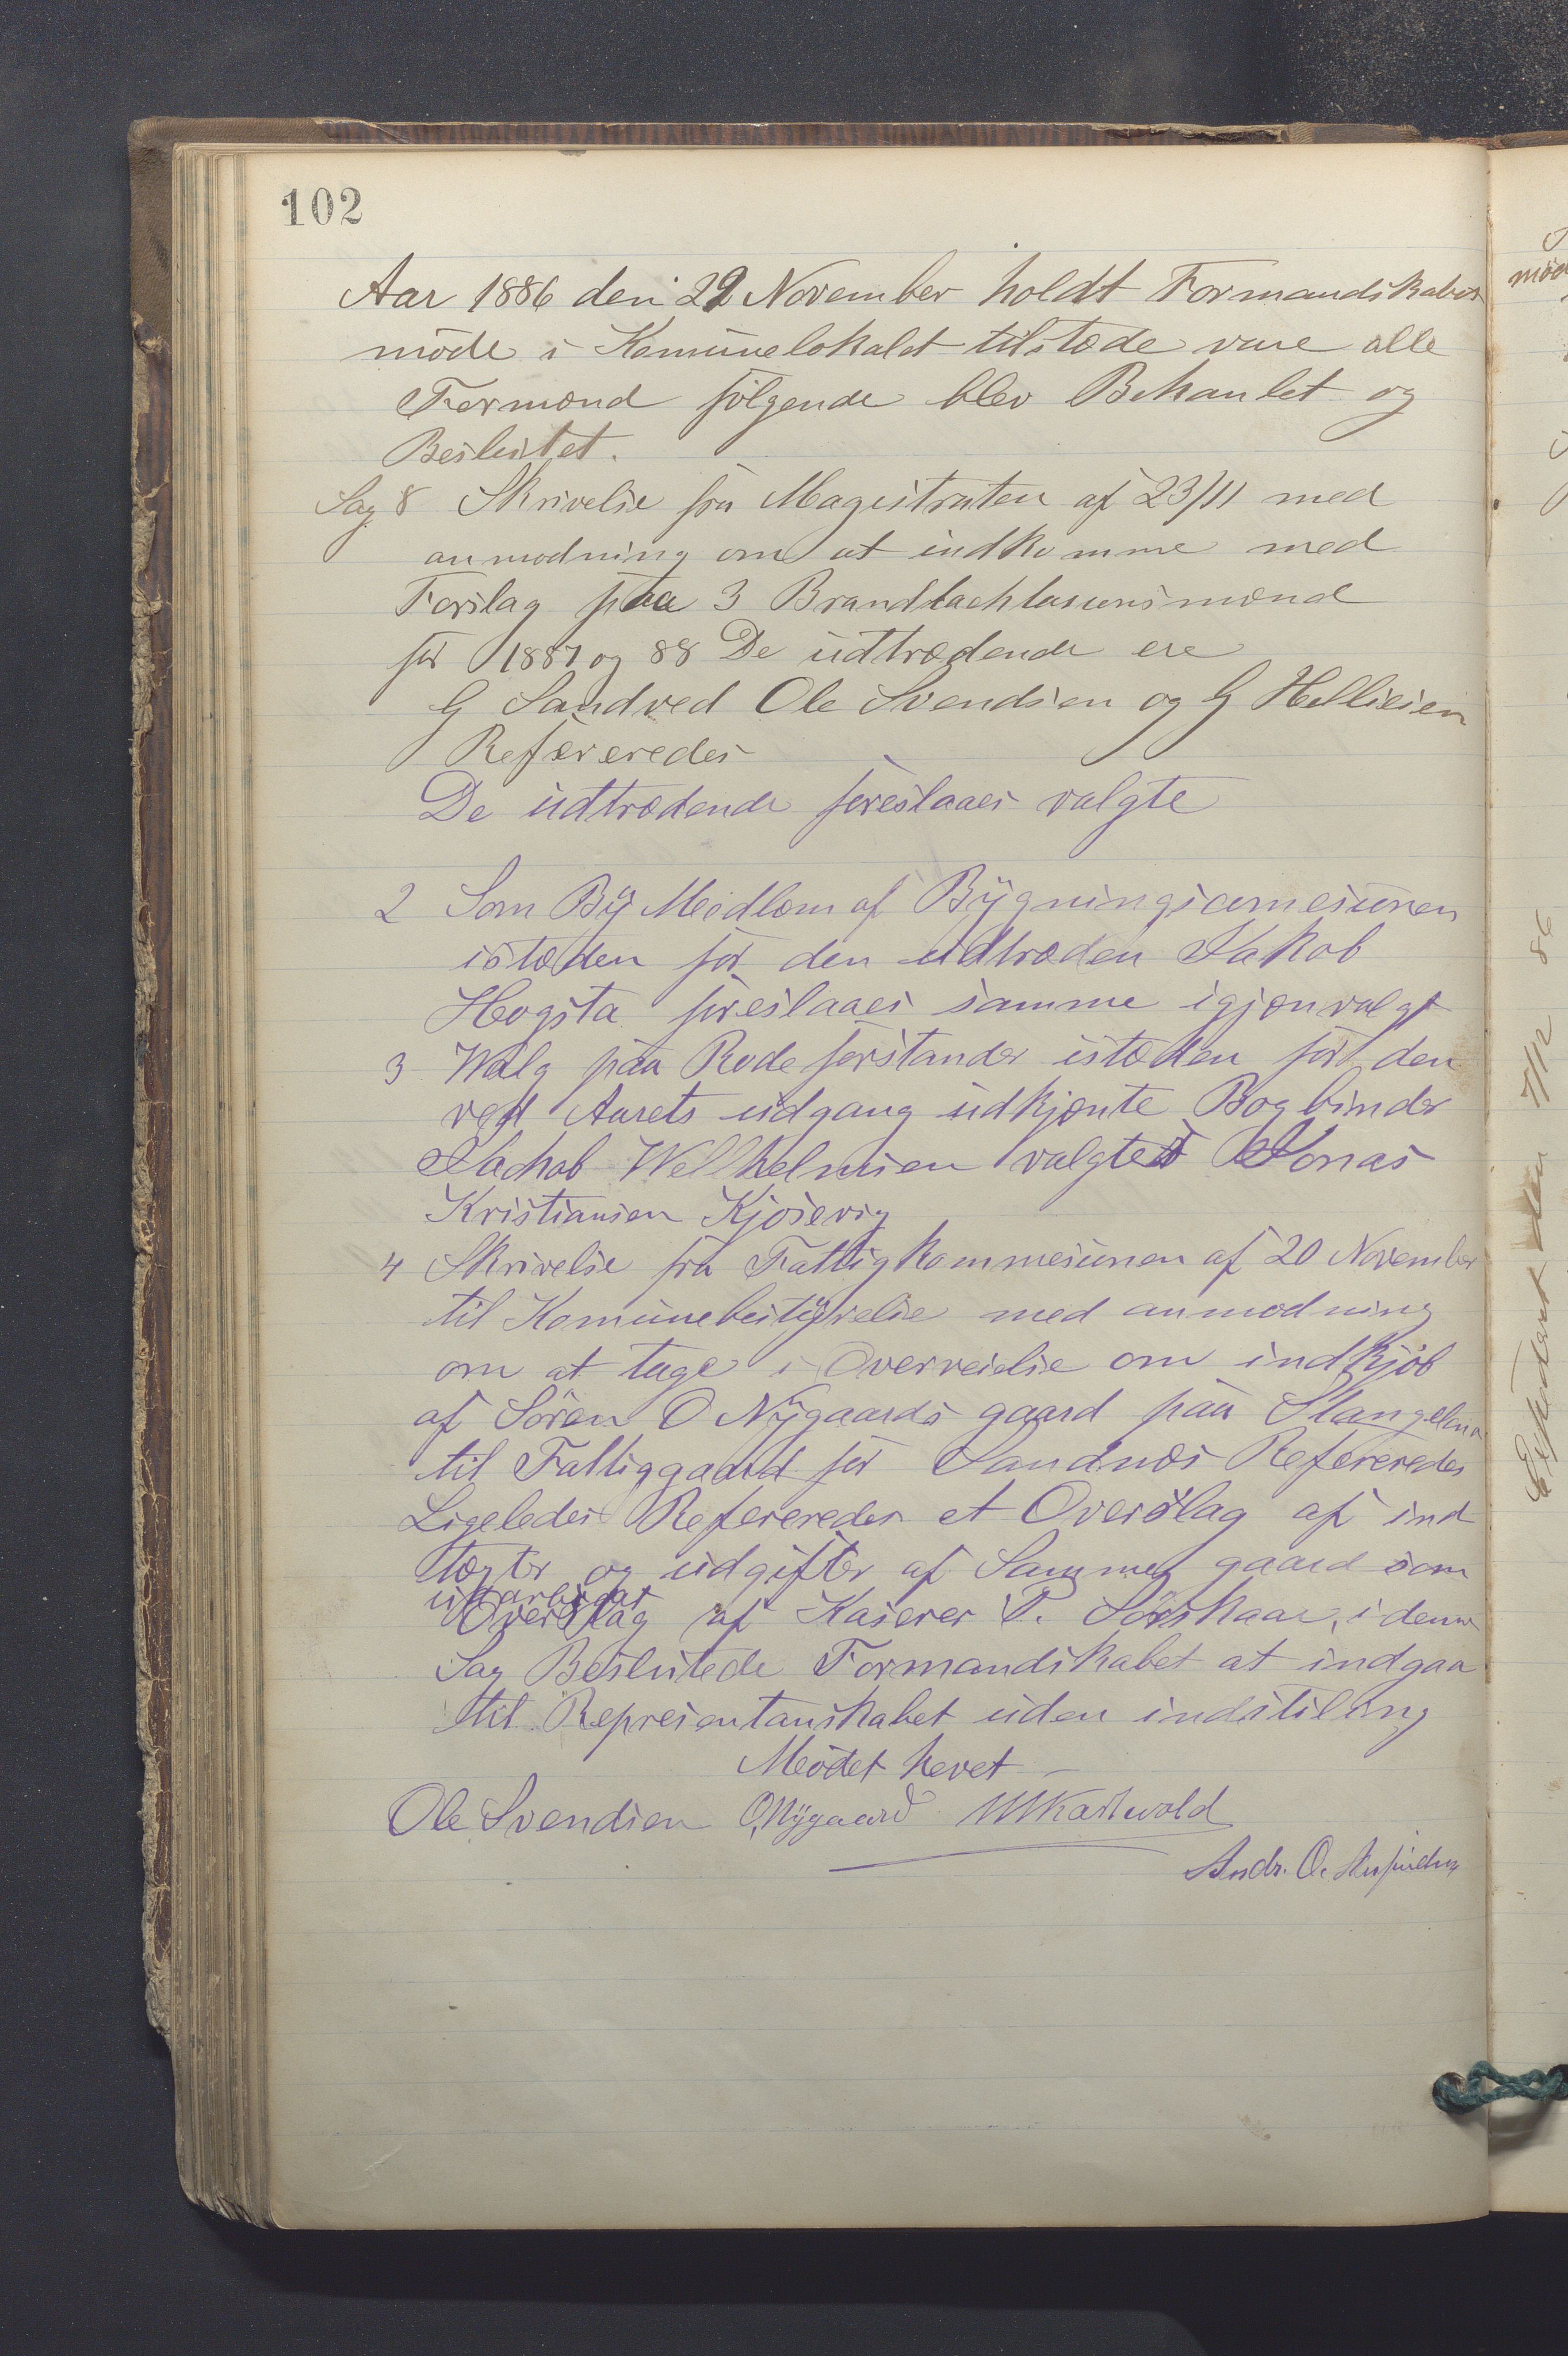 102
Aar 1886 den 29 November holdt Formandskabs
møde i Komunelokalet tilstæde vare alle
Formænd følgende blev Behanlet og
Besluttet.
Sag 8 Skrivelse fra Magistraten af 23/11 med
anmodning om at indkomme med
Forslag paa 3 Brandtachtasionsmænd
for 1887 og 88 De udtrædende ere
G Sandved Ole Svendsen og G Hellesen
Refereredes
De udtrædende foreslaaes valgte
2 Som By Medlem af Bygningscomesionen
istæden for den udtræden Jakob
Hogsta foreslaaes samme igjenvalgt
3 Walg paa Rodeforstander istæden for den
ved Aarets udgang udkjænte Bogbinder
Jachob Wellhelmsen valgtes Jonas
Kristiansen Kjosevig
4 Skrivelse fra Fattigkommesionen af 20 November
til Komunebestyrelse med anmodning
om at tage i Overveielse om indkjøb
af Søren O Nygaards gaard paa Stangeland
til Fattiggaard for Sandnæs Refereredes
Ligeledes Refereredes et Overslag af ind
tægter og udgifter af Samme gaard som
udarbidet
Overslag af Kaserer P. Sørskaar, i denne
Sag Besluttede Formandskabet at indgaa
til Represæntanskabet uden indstiling
Mødet hevet
Ole Svendsen O, Nygaard Kartwold
Andr. O.
Exp den 7/12 86